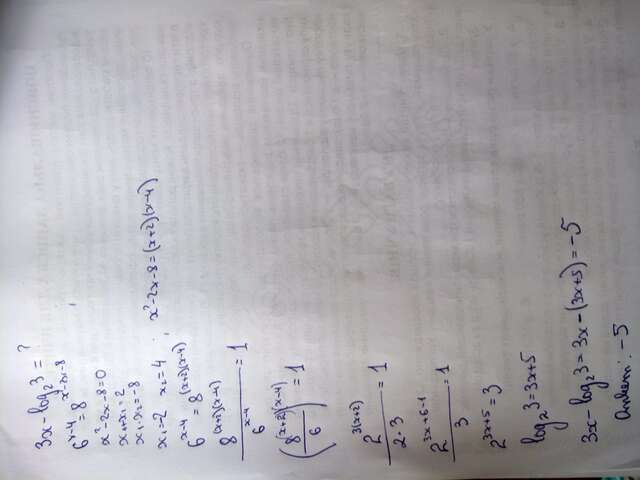 3x - log₂3 = ?
6^(x-4) = 8^(x²-2x-8)
x²-2x-8=0
x₁+x₂=2
x₁·x₂=-8
x₁=-2 x₂=4
x²-2x-8=(x+2)(x-4)
6^(x-4) = 8^((x+2)(x-4))
8^((x+2)(x-4)) / 6^(x-4) = 1
(8^(x+2) / 6)^(x-4) = 1
2^(3(x+2)) / 2·3 = 1
2^(3x+6-1) / 3 = 1
2^(3x+5) = 3
log₂3=3x+5
3x-log₂3=3x-(3x+5)=-5
-5